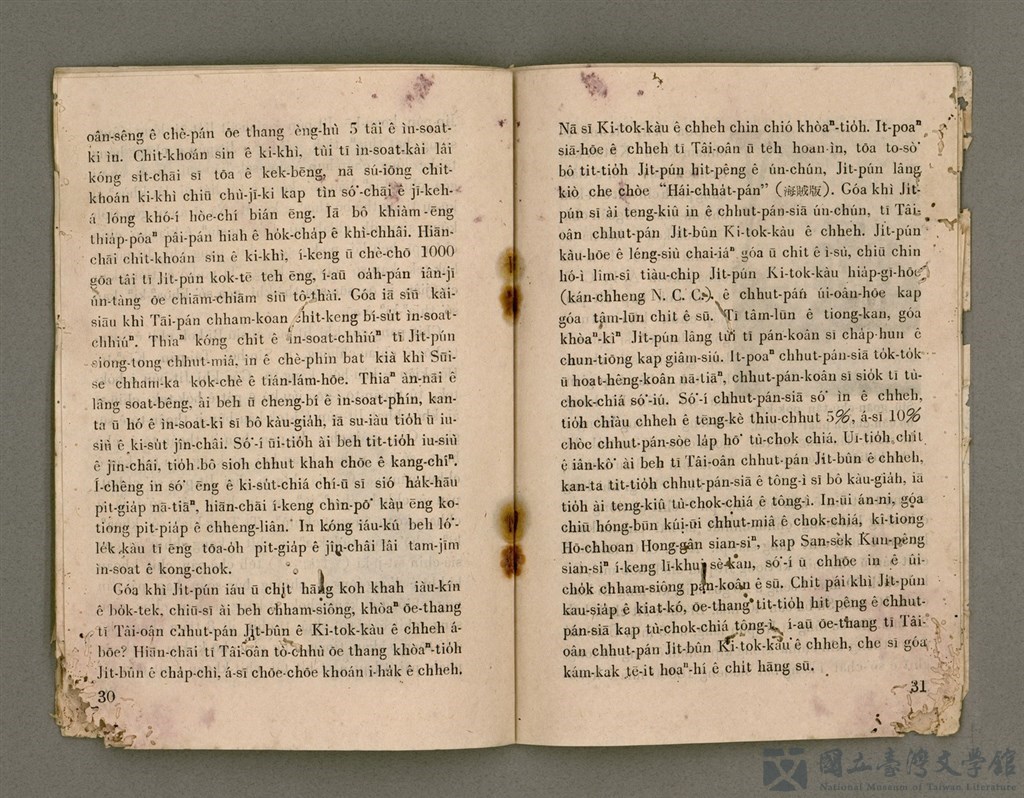 oân-sêng ê chè-pán ōe thang èng-hù 5 tâi ê ìn-soat-
ki ìn. Chit-khoán sin ê ki-khì, tùi tī ìn-soat-kài lâi
kóng si̍t-chāi sī tōa ê kek-bēng, nā sú-iōng chit-
khoán ki-khì chiū chù-jī-ki kap tìn só͘-chāi ê jī-keh-
á lóng khó-í hòe-chí bián ēng. Iā bô khiàm-ēng
thia̍p-pôaⁿ pâi-pán hiah ê ho̍k-cha̍p ê khì-chhâi. Hiān-
chāi chit-khoán sin ê ki-khì, í-keng ū chè-chō 1000
gōa tâi tī Ji̍t-pún kok-tē teh ēng, í-āu oa̍h-pán iân-jī
ún-tàng ōe chiām-chiām siū tô-thài. Góa iā siū kài-
siāu khì Tāi-pán chham-koan chit-keng bí-su̍t ìn-soat-
chhiúⁿ. Thiaⁿ kóng chit ê ìn-soat-chhiúⁿ tī Ji̍t-pún
siong-tong chhut-miâ, in ê chè-phín bat kià khì Sūi-
se chham-ka kok-chè ê tián-lám-hōe. Thiaⁿ àn-nāi ê
lâng soat-bêng, ài beh ū cheng-bī ê ìn-soat-phín, kan-
ta ū hó ê ìn-soat-ki sī bô kàu-gia̍h, iā su-iàu tio̍h ū iu-
siù ê ki-su̍t jîn-châi. Só͘-í ūi-tio̍h ài beh tit-tio̍h iu-siù
ê jîn-châi, tio̍h bô sioh chhut khah chōe ê kang-chîⁿ.
Í-chêng in só͘ ēng ê ki-su̍t-chiá chí-ū sī sió ha̍k-hāu
pit-gia̍p nā-tiāⁿ, hiān-chāi í-keng chìn-pō͘ kàu ēng ko-
tiong pit-gia̍p ê chheng-liân. In kóng iáu-kú beh ló͘-
le̍k kàu tī ēng tōa-o̍h pit-gia̍p ê jîn-châi lâi tam-jīm
ìn-soat ê kong-chok.
Góa khì Ji̍t-pún iáu ū chi̍t hāng koh khah iàu-kín
ê bo̍k-tek, chiū-sī ài beh chham-siông, khòaⁿ ōe-thang
tī Tâi-oân chhut-pán Ji̍t-bûn ê Ki-tok-kàu ê chheh á-
bōe? Hiān-chāi tī Tâi-oân tò-chhù ōe thang khòaⁿ-tio̍h
Ji̍t-bûn ê cha̍p-chì, á-sī chōe-chōe khoán i-ha̍k ê chheh.
30
Nā sī Ki-tok-kàu ê chheh chin chió khòaⁿ-tio̍h. It-poaⁿ
siā-hōe ê chheh tī Tâi-oân ū teh hoan-ìn, tōa to-sò͘
bô tit-tio̍h Ji̍t-pún hit-pêng ê ún-chún, Ji̍t-pún lâng
kiò che chòe "Hái-chha̍t-pán" (海賊版). Góa khì Ji̍t-
pún sī ài teng-kiû in ê chhut-pán-siā ún-chún, tī Tâi-
oân chhut-pán Ji̍t-bûn Ki-tok-kàu ê chheh. Ji̍t-pún
kàu-hōe ê léng-siù chai-iáⁿ góa ū chit ê ì-sù, chiū chin
hó-ì lîm-sî tiàu-chi̍p Ji̍t-pún Ki-tok-kàu hia̍p-gī-hōe
(kán-chheng N. C. C.), ê chhut-pán úi-oân-hōe kap
góa tâm-lūn chit ê sū. Tī tâm-lūn ê tiong-kan, góa
khòaⁿ-kìⁿ Ji̍t-pún lâng tùi tī pán-koân sī cha̍p-hun ê
chun-tiōng kap giâm-siú. It-poaⁿ chhut-pán-siā to̍k-to̍k
ū hoat-hêng-koân nā-tiāⁿ, chhut-pán-koân sī sio̍k tī tù-
chok-chiá só͘-iú. Só͘-í chhut-pán-siā só͘ ìn ê chheh,
tio̍h chiàu chheh ê tēng-kè thiu-chhut 5%, á-sī 10%
chòe chhut-pán-sòe la̍p hō͘ tù-chok chiá. Ūi-tio̍h chit
ê iân-kò͘ ài beh tī Tâi-oân chhut-pán Ji̍t-bûn ê chheh,
kan-ta tit-tio̍h chhut-pán-siā ê tông-ì sī bô kàu-gia̍h, iā
tio̍h ài teng-kiû tù-chok-chiá ê tông-ì. In-ūi án-ni, góa
chiū hóng-būn kúi-ūi chhut-miâ ê chok-chiá, kî-tiong
Hō-chhoan Hong-gân sian-siⁿ, kap San-sek Kun-pêng
sian-siⁿ í-keng lī-khui sè-kan, só͘-í ū chhōe in ê ûi-
cho̍k chham-siông pán-koân ê sū. Chit pái khì Ji̍t-pún
kau-sia̍p ê kiat-kó, ōe-thang tit-tio̍h hit pêng ê chhut-
pán-siā kap tù-chok-chiá tông-ì, í-āu ōe-thang tī Tâi-
oân chhut-pán Ji̍t-bûn Ki-tok-kàu ê chheh, che sī góa
kám-kak tē-it hoaⁿ-hí ê chi̍t hāng sū.
31
國立臺灣文學館
National Museum of Taiwan Literature